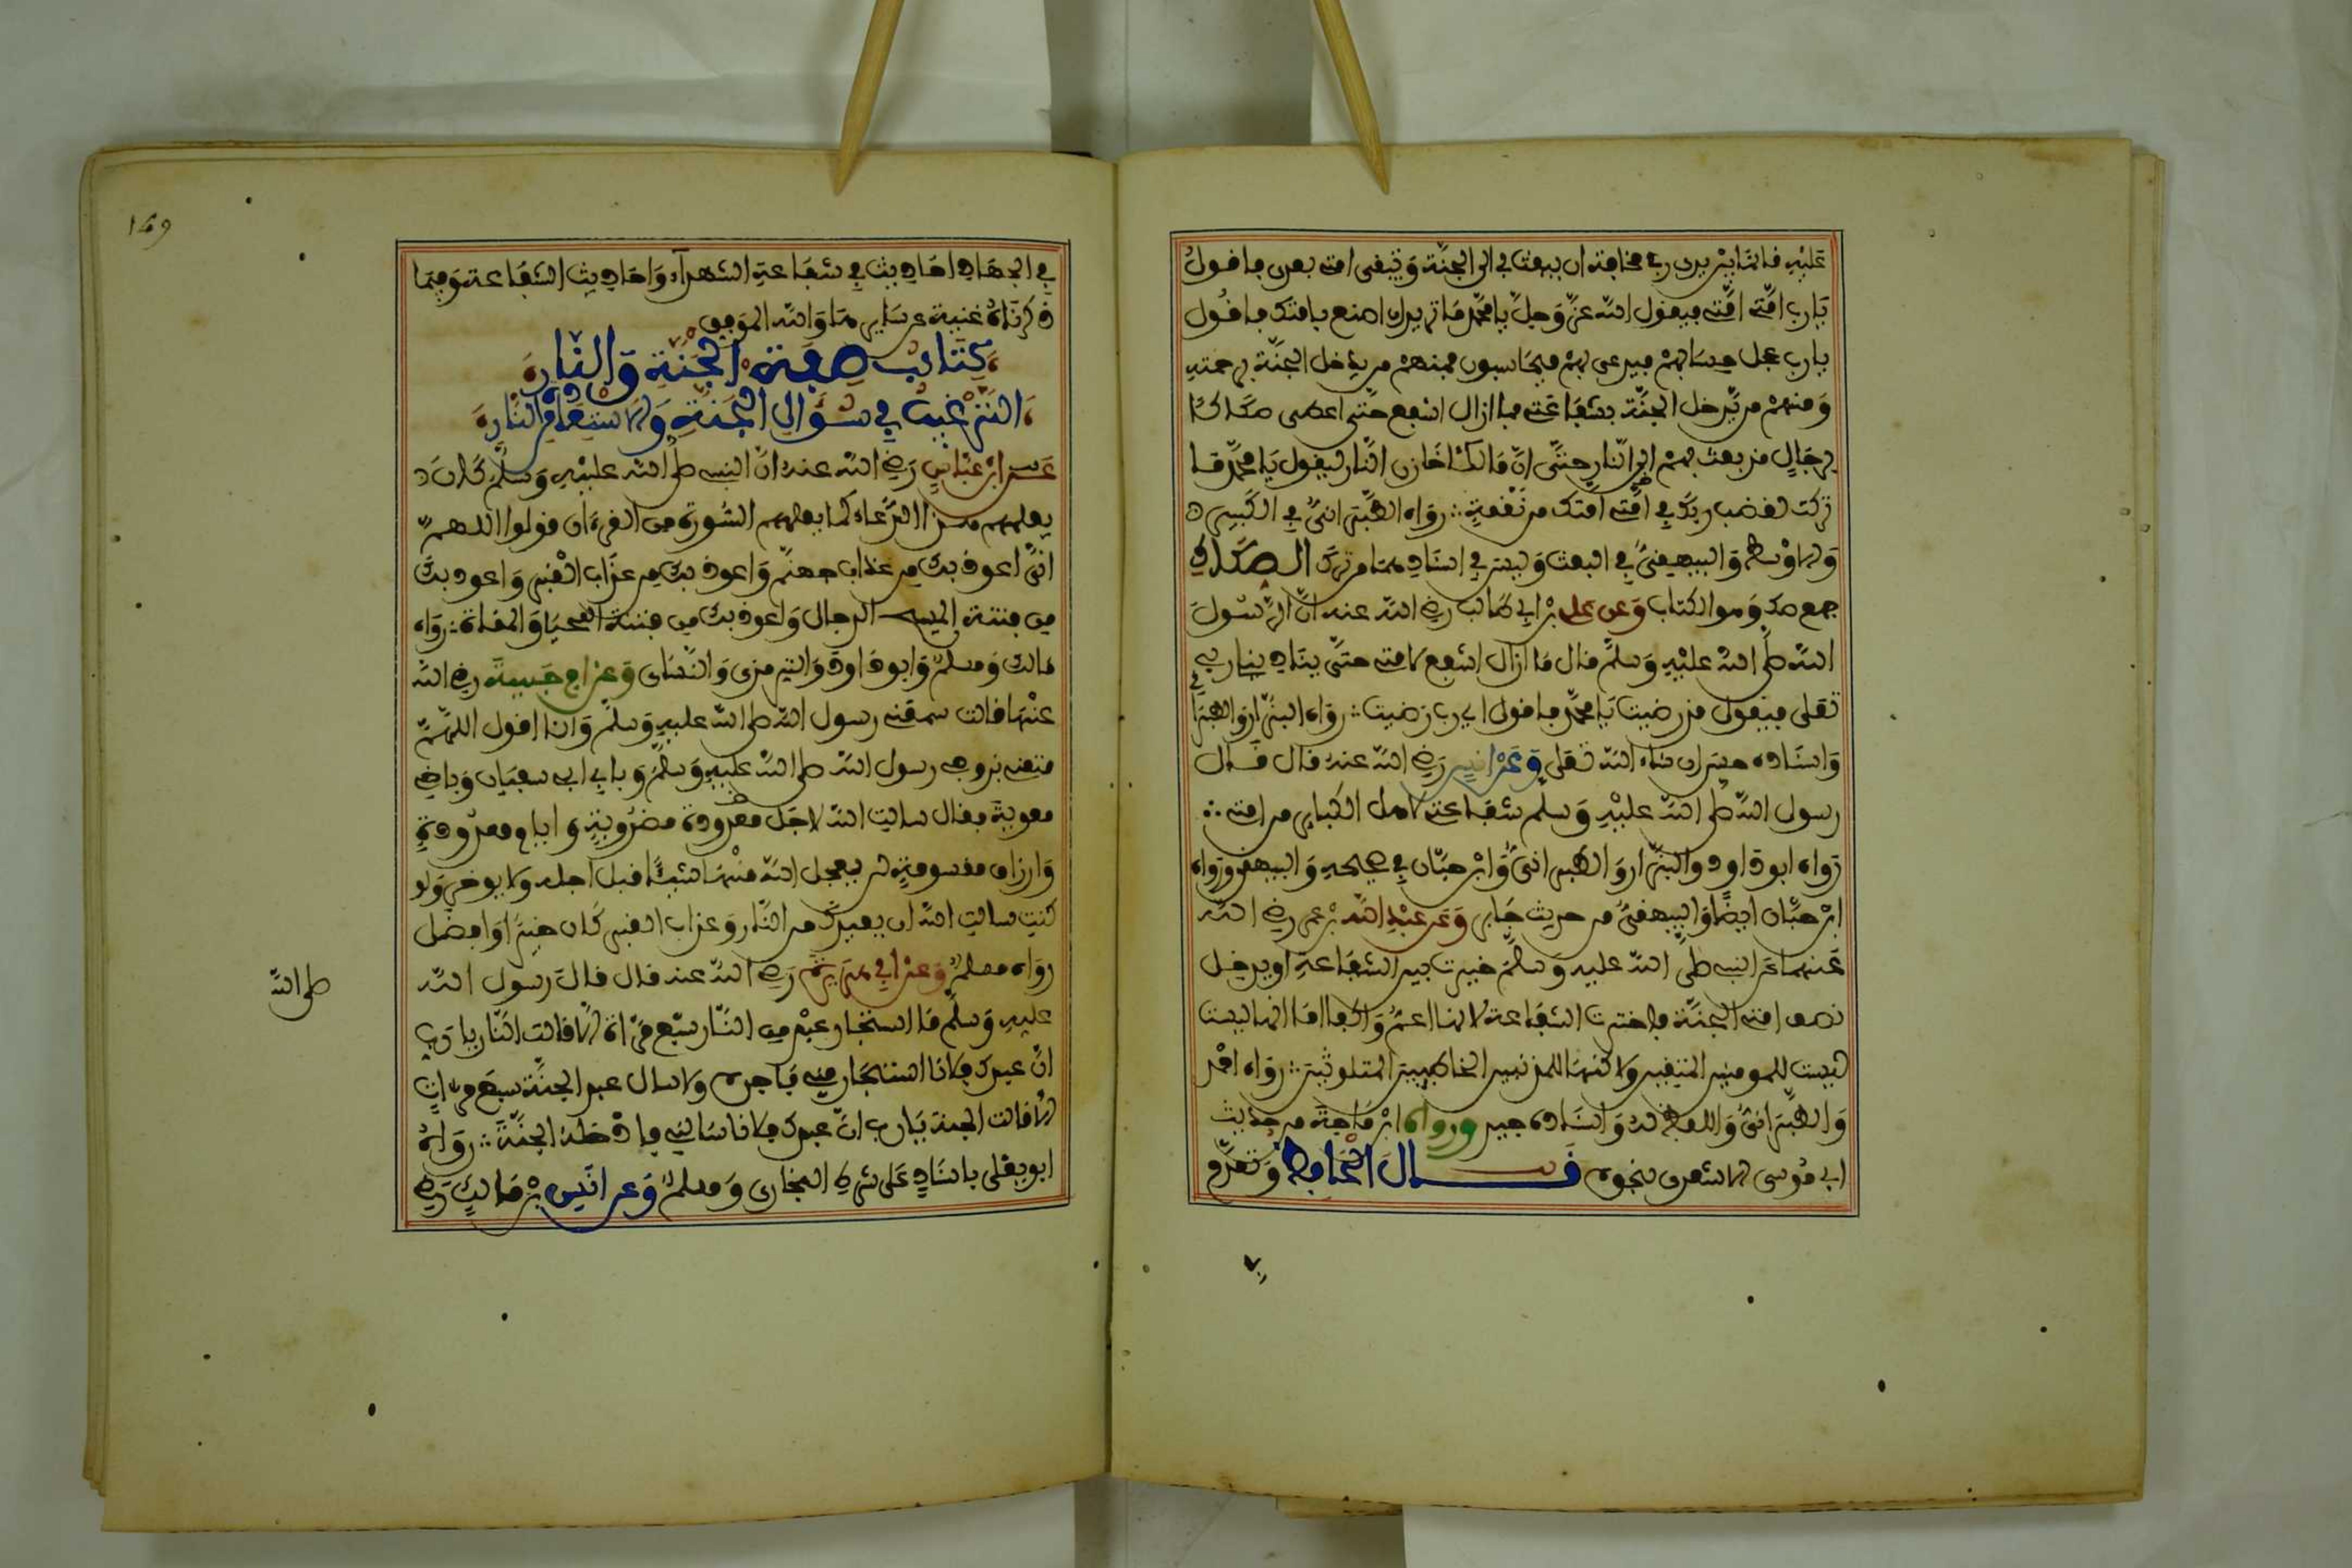 عليه فائما بين يدي ربي مخافة ان يبعث بي الى الجنة وتبقى امتي بعدي فاقول
يارب امتي امتي فيقول الله عز وجل يا محمد ما تريد ان اصنع بامتك فاقول
يارب عجل حسابهم فيدعى بهم فيحاسبون فمنهم من يدخل الجنة برحمته
ومنهم من يدخل الجنة بشفاعتي فما ازال اشفع حتى اعطى صكاكا
برجال قد بعث بهم الى النار حتى ان مالكا خازن النار ليقول يا محمد ما
تركت لغضب ربك في امتك من نقمة رواه الطبراني في الكبير
والاوسط والبيهقي في البعث وليس في اسناده من ترك الصكاك
جمع صك وهو الكتاب وعن علي بن ابي طالب رضي الله عنه ان رسول
الله صلى الله عليه وسلم قال ما ازال اشفع لامتي حتى يناديني ربي
تعلى فيقول قد رضيت يا محمد فاقول اي رب رضيت رواه البزار والطبراني
واسناده حسن ان شاء الله تعلى وعن انس رضي الله عنه قال قال
رسول الله صلى الله عليه وسلم شفاعتي لاهل الكبائر من امتي
رواه ابو داود والبزار والطبراني وابن حبان في صحيحه والبيهقي ورواه
ابن حبان ايضا والبيهقي من حديث جابر وعن عبد الله بن عمر رضي الله
عنهما عن النبي صلى الله عليه وسلم خيرت بين الشفاعة او يدخل
نصف امتي الجنة فاخترت الشفاعة لانها اعم واكفا اما انها ليست
للمومنين المتقين ولاكنها للمذنبين الخاطيين المتلوثين رواه احمد
والطبراني واللفظ له واسناده جيد ورواه ابن ماجة من حديث
ابي موسى الاشعري بنحوه قال الحافظ وتقدم
169
في الجهاد احاديث في شفاعة الشهداء واحاديث الشفاعة وفيما
ذكرناه غنية عن سايرها والله الموفق
كتاب صفة الجنة والنار
الترغيب في سؤال الجنة والاستعاذة من النار
عن ابن عباس رضي الله عنه ان النبي صلى الله عليه وسلم كان
يعلمهم هذا الدعاء كما يعلمهم السورة من القرءان قولوا اللهم
اني اعوذ بك من عذاب جهنم واعوذ بك من عذاب القبر واعوذ بك
من فتنة المسيح الدجال واعوذ بك من فتنة المحيا والممات رواه
مالك ومسلم وابو داود والترمذي والنساي وعن ام حبيبة رضي الله
عنها قالت سمعني رسول الله صلى الله عليه وسلم وانا اقول اللهم
متعني بزوجي رسول الله صلى الله عليه وسلم وبابي ابي سفيان وباخي
معوية فقال سالت الله لاجال معدودة مضروبة وايام معدودة
وارزاق مقسومة لن يعجل الله منها شيئا قبل اجله ولا يوخر ولو
كنت سالت الله ان يعيذك من النار وعذاب القبر كان خيرا وافضل
رواه مسلم وعن ابي هريرة رضي الله عنه قال قال رسول الله
صلى الله
عليه وسلم ما استجار عبد من النار سبع مرات الا قالت النار يا رب
ان عبدك فلانا استجار مني فاجره ولا سال عبد الجنة سبع مرات
الا قالت الجنة يارب ان عبدك فلانا سالني فادخله الجنة رواه
ابو يعلى باسناد على شرط البخاري ومسلم وعن انس بن مالك رضي